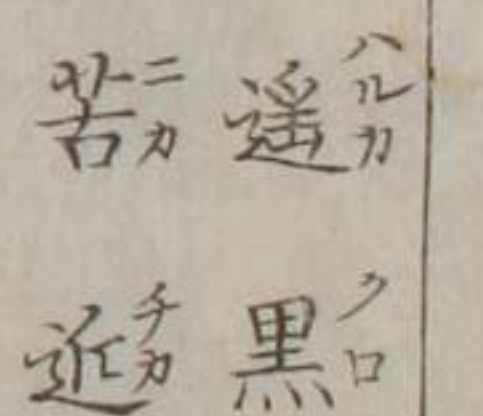 遥ハルカ
黒クロ
苦ニカ
近チカ